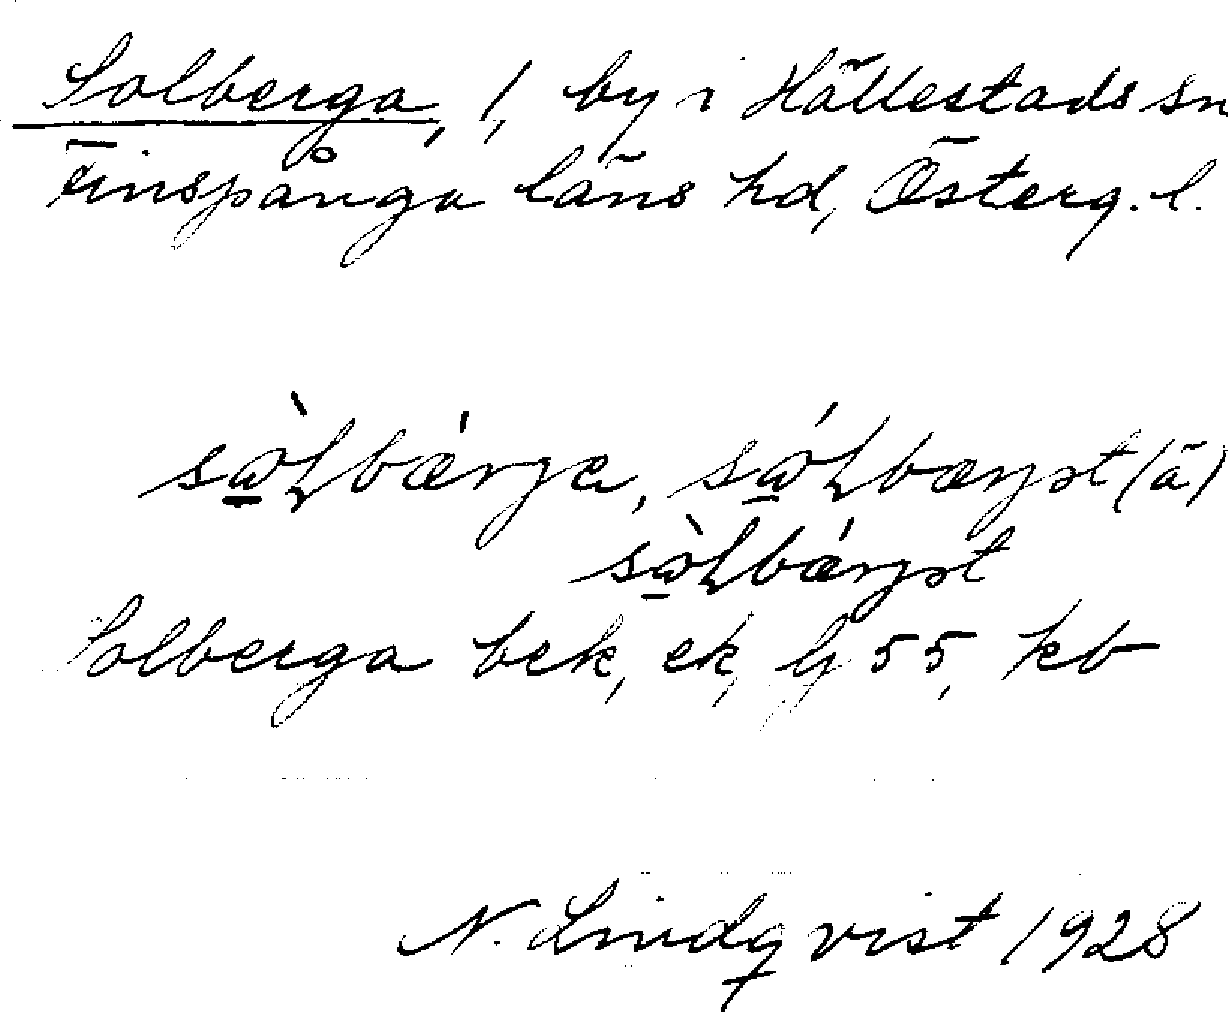 Solberga, 1, by i Hällestads sn
Finspånga läns hd, Österg. l.
(ä)
Solberga bek, ek, G 55, kb
N. Lindqvist 1928